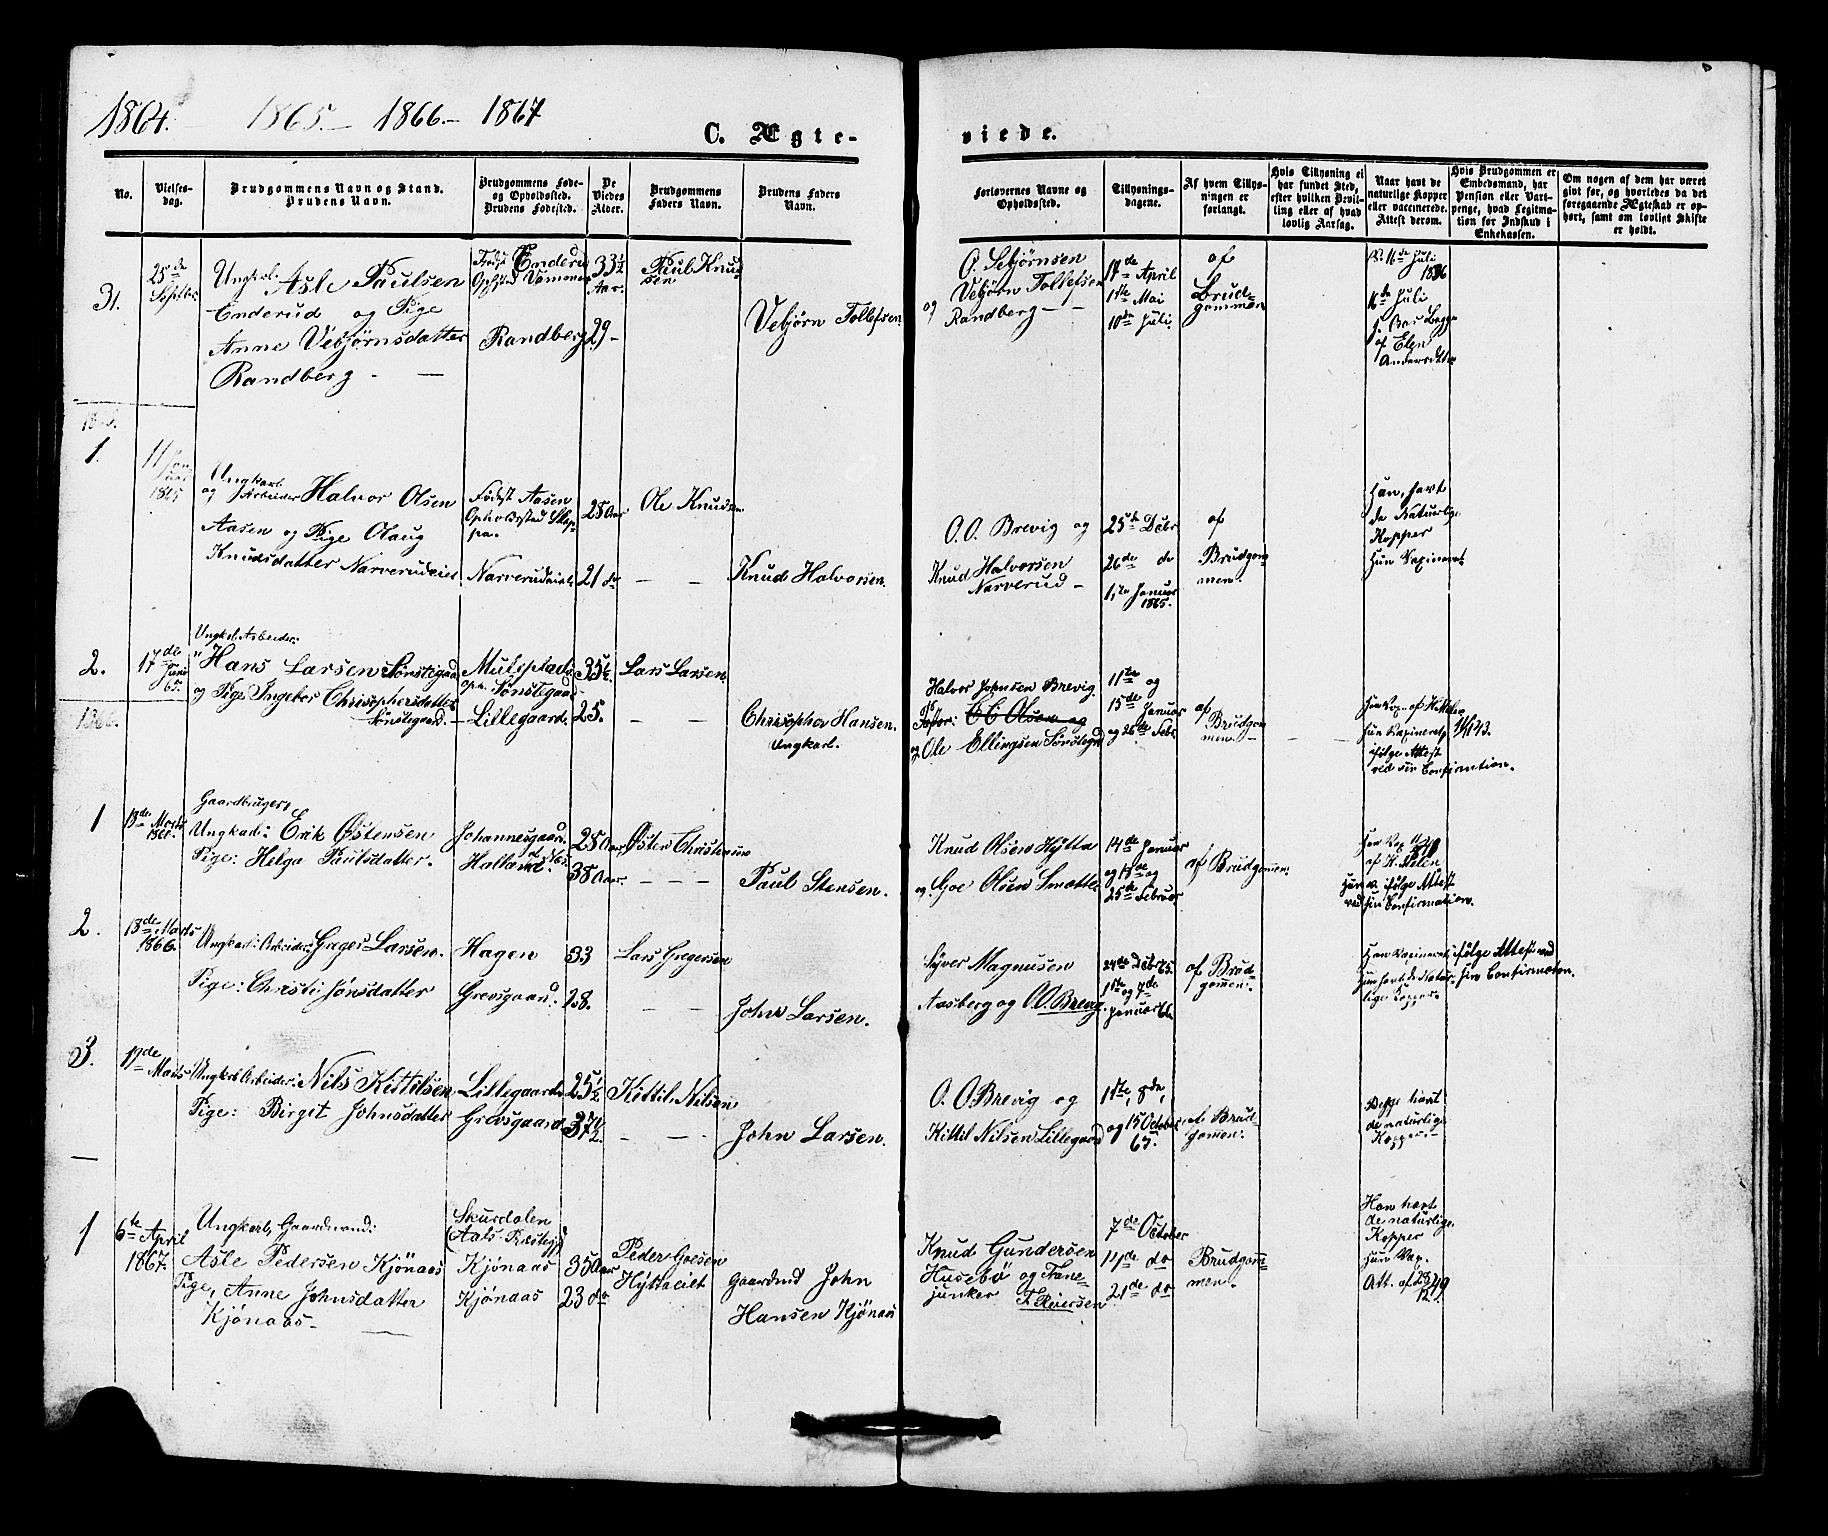 1864. 1865.— 1866.— 1867
C. Ægte-
viede.
No.
Vielses-
dag.
Brudgommens Navn og Stand.
Brudens Navn.
Brudgommens Føde-
og Opholdssted.
Brudens Fødested.
De
Viedes
Alder.
Brudgommens
Faders Navn.
Brudens Faders
Navn.
Forlovernes Navne og
Opholdssted.
Tillysnings-
dagene.
Af hvem Tillys-
ningen er
forlangt.
Hvis Tillysning ei
har fundet Sted,
efter hvilken Bevil-
ling eller af hvad
lovlig Aarsag.
Naar havt de
naturlige Kopper
eller vaccinerede.
Attest derom.
Hvis Brudgommen er
Embedsmand, har
Pension eller Vart-
penge, hvad Legitima-
tion for Indskud i
Enkekassen.
Om nogen af dem har været
gift før, og hvorledes da det
foregaaende Ægteskab er op-
hørt, samt om lovligt Skifte
er holdt.
31.
25de
Septbr.
Ungkarl. Asle Paulsen
Enderud og Pige
Anne Vebjørnsdatter
Randberg — —
Enderud
Randberg
33½
Aar.
29 —
Paul Knud-
sen
Vebjørn Tollefsen.
O. Sebjørnsen
Vebjørn Tollefsen
og Randberg — —
17de April
1ste Mai
10de Juli.
af
Brud-
gommen
16de Juli
16de Juli
af Elen
Andersdatter
1.
11 Jan-
uar
1865
Ungkarl
og Arbeider Halvor Olsen
Aasen og Pige Olaug
Knudsdatter Narverudeiet
Født Aasen
Opholdssted Skop-
pa.
Narverudeiet.
25 Aar
21 do
Ole Knudsen
— —
Knud Halvorsen.
O. O. Brevig og
Knud Halvorsen
Narverud —
25de Debr
26de do
1ste Januar
1865.
af
Brudgom-
men.
Han, havt
de Naturlige
Kopper
Hun Vaxineret
2.
17de
Juni
65.
Ungkal. Arbeider.
Hans Larsen Sønstegaad
og Pige Ingebor Chrisophersdatter
Sønstegaard. —
oph. Sønstegaad
Lillegaard.
35½
25.
Lars Larsen.
— —
Chrisophor Hansen.
Ungkarl.
Halvor Johnsen Brevig.
og Ole Ellingsen Sønstegrd
11te og
15de Januar
og 26de Febr.
af
Brudgom
men. —
Hun Vaxineret
ifølge Attest
ved sin Confirmation.
1866.
1
18de Marts
1866.
Gaardbruger,
Ungkal: Erik Østensen
Pige: Helga Paulsdatter.
Johannesgaard.
Halland
25 Aar,
38 Aar.
Østen Christensen
— — —
Paul Stensen.
Knud Olsen Hytta
og Gjoe Olsen Smætte
14de Januar
og 18de og
25de Februar
af Brudgomen:
Han Vax.
af H. Helen
Hun v. ifølge Attest
ved sin Confirmation.
2.
18de Marts
1866.
Ungkal: Arbeider: Greger Larsen.
Pige: Christi Jønsdatter
Hagen
Grevsgaard.
33
28.
Lars Gregersen
— —
John Larsen.
Syver Magnusen
Aasberg og O O. Brevig.
24de Debr 65.
1ste og 7de
Januar 66.
af Brud-
gomen:
Han Vaxineret ifølge Attest ved
Hun havt de Natur- sin Confirmation.
lige Kopper.
3.
19de
Marts
Ungkarl Arbeider: Nils Kittilsen
Pige: Birgit Johnsdatter
Lillegaard
Grevsgaard
25½
37½
Kittil Nilsen
— —
John Larsen.
O. O Brevig og
Kittil Nilsen Lillegaard
1ste, 8de,
og 15 October
65.
af Brud-
gomen:
Begge havt
de naturlige
Kopper. —
1
6te April
1867.
Ungkarl, Gaardmand:
Asle Pedersen Kjønaas
Pige, Anne Johnsdatter
Kjønaas —
Skurdalen
(Aals Præstegj)
Kjønaas
Kjønaas
35 Aar
23 do
Peder Goesen
Hytteeiet
Gaardmd John
Hansen Kjønaas
Knud Gundersen
Husebö og Fane-
junker F. Reiersen.
7de October
14de do
21de do
Brudgom-
men.
Han havt
de naturlige
Kopper
Hun Vax.
Att. af 28/12 49